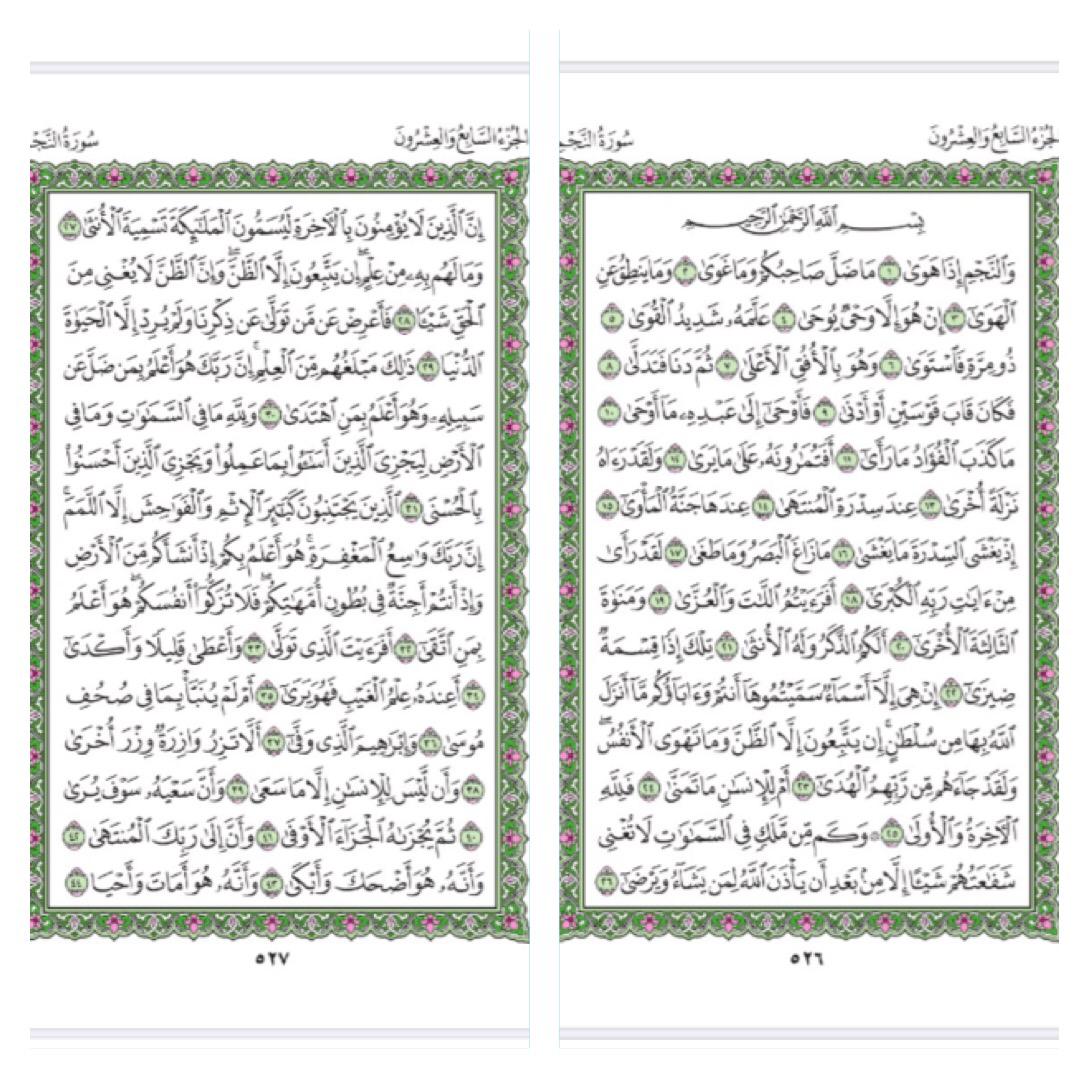 سُورَةُ النَّجْمِ
الجُزْءُ السَّابِعُ وَالعِشْرُونَ
بِسْمِ ٱللَّهِ ٱلرَّحْمَٰنِ ٱلرَّحِيمِ
وَٱلنَّجْمِ إِذَا هَوَىٰ ١ مَا ضَلَّ صَاحِبُكُمْ وَمَا غَوَىٰ ٢ وَمَا يَنطِقُ عَنِ
ٱلْهَوَىٰٓ ٣ إِنْ هُوَ إِلَّا وَحْىٌ يُوحَىٰ ٤ عَلَّمَهُۥ شَدِيدُ ٱلْقُوَىٰ ٥
ذُو مِرَّةٍ فَٱسْتَوَىٰ ٦ وَهُوَ بِٱلْأُفُقِ ٱلْأَعْلَىٰ ٧ ثُمَّ دَنَا فَتَدَلَّىٰ ٨
فَكَانَ قَابَ قَوْسَيْنِ أَوْ أَدْنَىٰ ٩ فَأَوْحَىٰٓ إِلَىٰ عَبْدِهِۦ مَآ أَوْحَىٰ ١٠
مَا كَذَبَ ٱلْفُؤَادُ مَا رَأَىٰٓ ١١ أَفَتُمَٰرُونَهُۥ عَلَىٰ مَا يَرَىٰ ١٢ وَلَقَدْ رَءَاهُ
نَزْلَةً أُخْرَىٰ ١٣ عِندَ سِدْرَةِ ٱلْمُنتَهَىٰ ١٤ عِندَهَا جَنَّةُ ٱلْمَأْوَىٰٓ ١٥
إِذْ يَغْشَى ٱلسِّدْرَةَ مَا يَغْشَىٰ ١٦ مَا زَاغَ ٱلْبَصَرُ وَمَا طَغَىٰ ١٧ لَقَدْ رَأَىٰ
مِنْ ءَايَٰتِ رَبِّهِ ٱلْكُبْرَىٰٓ ١٨ أَفَرَءَيْتُمُ ٱللَّٰتَ وَٱلْعُزَّىٰ ١٩ وَمَنَوٰةَ
ٱلثَّالِثَةَ ٱلْأُخْرَىٰٓ ٢٠ أَلَكُمُ ٱلذَّكَرُ وَلَهُ ٱلْأُنثَىٰ ٢١ تِلْكَ إِذًا قِسْمَةٌ
ضِيزَىٰٓ ٢٢ إِنْ هِىَ إِلَّآ أَسْمَآءٌ سَمَّيْتُمُوهَآ أَنتُمْ وَءَابَآؤُكُم مَّآ أَنزَلَ
ٱللَّهُ بِهَا مِن سُلْطَٰنٍ ۚ إِن يَتَّبِعُونَ إِلَّا ٱلظَّنَّ وَمَا تَهْوَى ٱلْأَنفُسُ ۖ
وَلَقَدْ جَآءَهُم مِّن رَّبِّهِمُ ٱلْهُدَىٰٓ ٢٣ أَمْ لِلْإِنسَٰنِ مَا تَمَنَّىٰ ٢٤ فَلِلَّهِ
ٱلْءَاخِرَةُ وَٱلْأُولَىٰ ٢٥ ۞ وَكَم مِّن مَّلَكٍ فِى ٱلسَّمَٰوَٰتِ لَا تُغْنِى
شَفَٰعَتُهُمْ شَيْـًٔا إِلَّا مِنۢ بَعْدِ أَن يَأْذَنَ ٱللَّهُ لِمَن يَشَآءُ وَيَرْضَىٰٓ ٢٦
٥٢٦
سُورَةُ النَّجْمِ
الجُزْءُ السَّابِعُ وَالعِشْرُونَ
إِنَّ ٱلَّذِينَ لَا يُؤْمِنُونَ بِٱلْءَاخِرَةِ لَيُسَمُّونَ ٱلْمَلَٰٓئِكَةَ تَسْمِيَةَ ٱلْأُنثَىٰ ٢٧
وَمَا لَهُم بِهِۦ مِنْ عِلْمٍ ۖ إِن يَتَّبِعُونَ إِلَّا ٱلظَّنَّ ۖ وَإِنَّ ٱلظَّنَّ لَا يُغْنِى مِنَ
ٱلْحَقِّ شَيْـًٔا ٢٨ فَأَعْرِضْ عَن مَّن تَوَلَّىٰ عَن ذِكْرِنَا وَلَمْ يُرِدْ إِلَّا ٱلْحَيَوٰةَ
ٱلدُّنْيَا ٢٩ ذَٰلِكَ مَبْلَغُهُم مِّنَ ٱلْعِلْمِ ۚ إِنَّ رَبَّكَ هُوَ أَعْلَمُ بِمَن ضَلَّ عَن
سَبِيلِهِۦ وَهُوَ أَعْلَمُ بِمَنِ ٱهْتَدَىٰ ٣٠ وَلِلَّهِ مَا فِى ٱلسَّمَٰوَٰتِ وَمَا فِى
ٱلْأَرْضِ لِيَجْزِىَ ٱلَّذِينَ أَسَٰٓـُٔوا۟ بِمَا عَمِلُوا۟ وَيَجْزِىَ ٱلَّذِينَ أَحْسَنُوا۟
بِٱلْحُسْنَى ٣١ ٱلَّذِينَ يَجْتَنِبُونَ كَبَٰٓئِرَ ٱلْإِثْمِ وَٱلْفَوَٰحِشَ إِلَّا ٱللَّمَمَ ۚ
إِنَّ رَبَّكَ وَٰسِعُ ٱلْمَغْفِرَةِ ۚ هُوَ أَعْلَمُ بِكُمْ إِذْ أَنشَأَكُم مِّنَ ٱلْأَرْضِ
وَإِذْ أَنتُمْ أَجِنَّةٌ فِى بُطُونِ أُمَّهَٰتِكُمْ ۖ فَلَا تُزَكُّوٓا۟ أَنفُسَكُمْ ۖ هُوَ أَعْلَمُ
بِمَنِ ٱتَّقَىٰٓ ٣٢ أَفَرَءَيْتَ ٱلَّذِى تَوَلَّىٰ ٣٣ وَأَعْطَىٰ قَلِيلًا وَأَكْدَىٰٓ
٣٤ أَعِندَهُۥ عِلْمُ ٱلْغَيْبِ فَهُوَ يَرَىٰٓ ٣٥ أَمْ لَمْ يُنَبَّأْ بِمَا فِى صُحُفِ
مُوسَىٰ ٣٦ وَإِبْرَٰهِيمَ ٱلَّذِى وَفَّىٰٓ ٣٧ أَلَّا تَزِرُ وَازِرَةٌ وِزْرَ أُخْرَىٰ
٣٨ وَأَن لَّيْسَ لِلْإِنسَٰنِ إِلَّا مَا سَعَىٰ ٣٩ وَأَنَّ سَعْيَهُۥ سَوْفَ يُرَىٰ
٤٠ ثُمَّ يُجْزَىٰهُ ٱلْجَزَآءَ ٱلْأَوْفَىٰ ٤١ وَأَنَّ إِلَىٰ رَبِّكَ ٱلْمُنتَهَىٰ ٤٢
وَأَنَّهُۥ هُوَ أَضْحَكَ وَأَبْكَىٰ ٤٣ وَأَنَّهُۥ هُوَ أَمَاتَ وَأَحْيَا ٤٤
٥٢٧